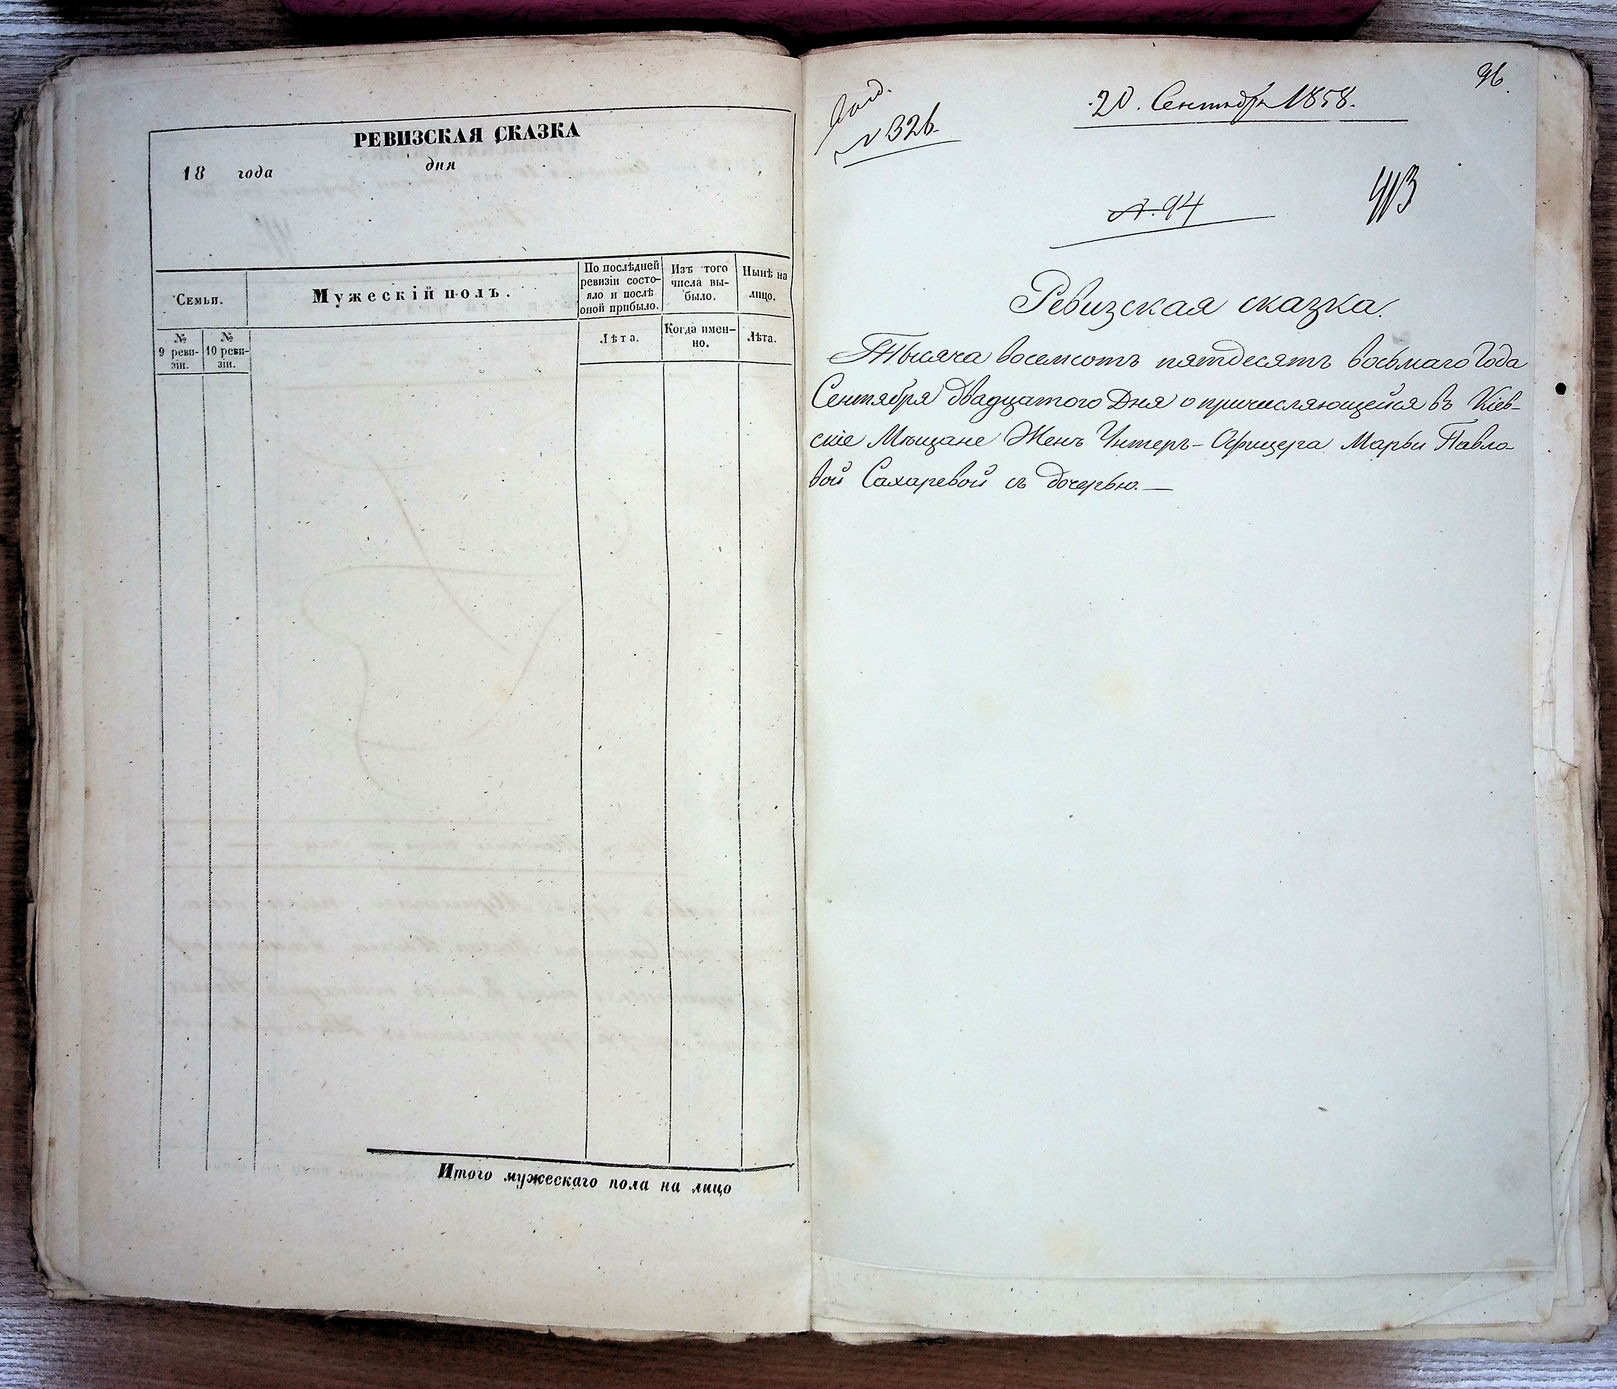 РЕВИЗСКАЯ СКАЗКА
18 года дня
Семьи.
Мужескій полъ.
По послѣдней
ревизіи состо-
яло и послѣ
оной прибыло.
Изъ того
числа вы-
было.
Нынѣ на
лицо.
№
9 реви-
зіи.
№
10 реви-
зіи.
Лѣта.
Когда имен-
но.
Лѣта.
Итого мужескаго пола на лицо
96.
20. Сентября 1858.
№ 326
№. 94
413
Ревизская сказка.
Тысяча восемсотъ пятдесятъ восьмаго Года
Сентября двадцатого Дня о причисляющейся въ Кіев-
скіе Мѣщане Женѣ Унтеръ-Офицера Марьи Павло-
вой Сахаревой съ дочерью.—